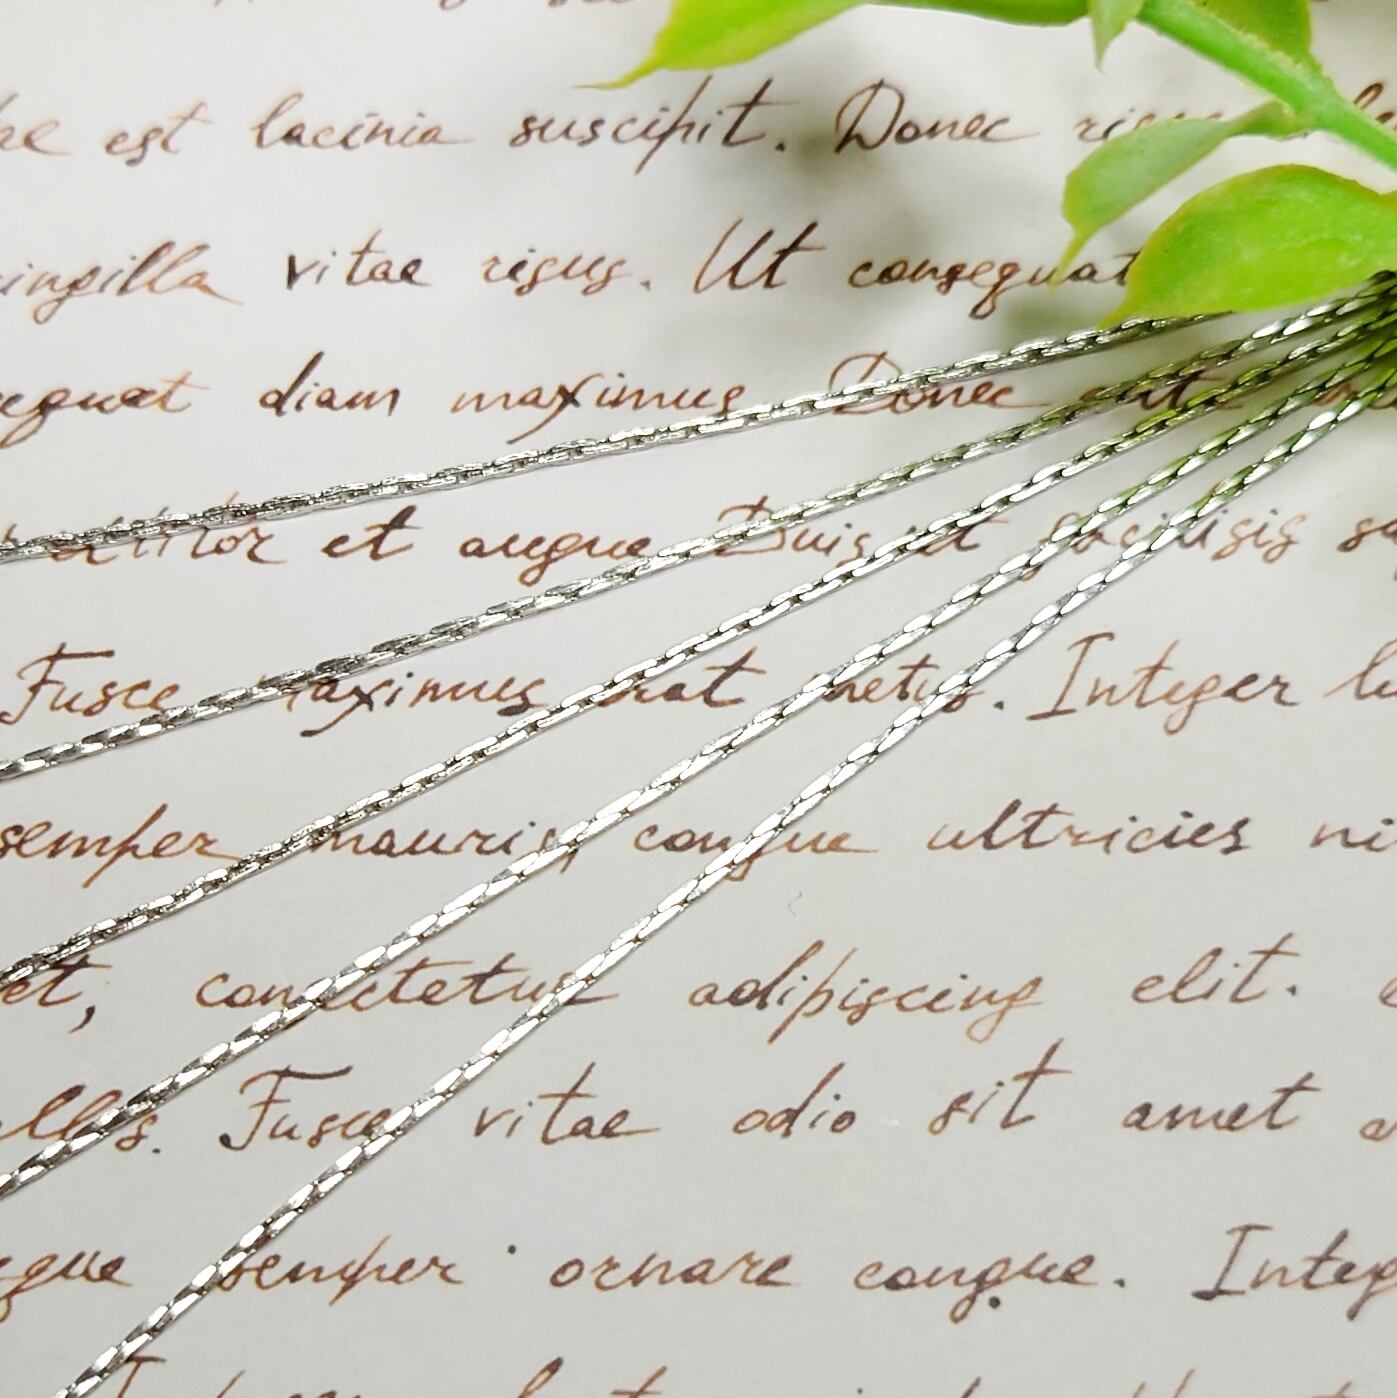 est lacinia suscipit. Donec
vitae risus. Ut consequat
diam maximus Donec ante
et augue Duis et facilisis
Fusce maximus erat metus. Integer
semper mauris, congue ultricies
et, consectetur adipiscing elit.
Fusce vitae odio sit amet
semper ornare congue. Integ